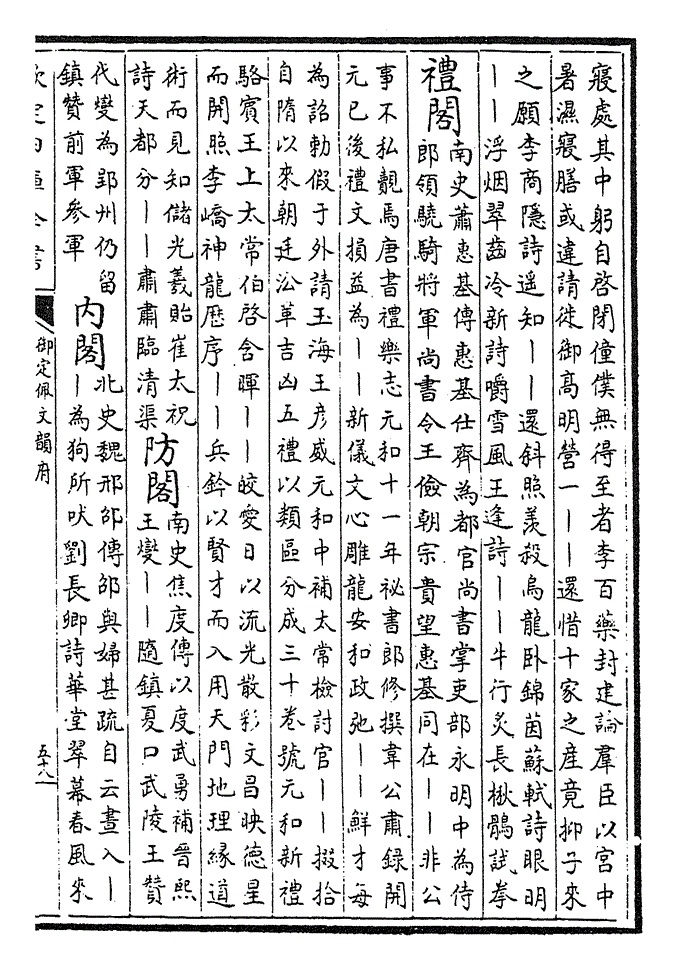 寢處其中躬自啓閉僮僕無得至者李百藥封建論羣臣以宮中
暑濕寢膳或違請徙御高明營一丨丨還惜十家之産竟抑子來
之願李商隱詩遥知丨丨還斜照羨殺烏龍卧錦茵蘇軾詩眼明
丨丨浮烟翠齒冷新詩嚼雪風王逢詩丨丨牛行炙長楸鶻試拳
禮閣
南史蕭惠基傳惠基仕齊為都官尚書掌吏部永明中為侍
郎領驍騎將軍尚書令王儉朝宗貴望惠基同在丨丨非公
事不私覿焉唐書禮樂志元和十一年祕書郎修撰韋公肅錄開
元已後禮文損益為丨丨新儀文心雕龍安和政弛丨丨鮮才每
為詔勅假于外請玉海王彦威元和中補太常檢討官丨丨掇拾
自隋以來朝廷沿革吉凶五禮以類區分成三十卷號元和新禮
駱賓王上太常伯啓含暉丨丨皎愛日以流光散彩文昌映德星
而開照李嶠神龍歴序丨丨兵鈐以賢才而入用天門地理緣道
術而見知儲光羲貽崔太祝
詩天都分丨丨肅肅臨清渠
防閣
南史焦度傳以度武勇補晉熙
王燮丨丨隨鎮夏口武陵王贊
代燮為郢州仍留
鎮贊前軍參軍
內閣
北史魏邢邵傳邵與婦甚疏自云晝入丨
丨為狗所吠劉長卿詩華堂翠幕春風來
欽定四庫全書
御定佩文韻府
五十八